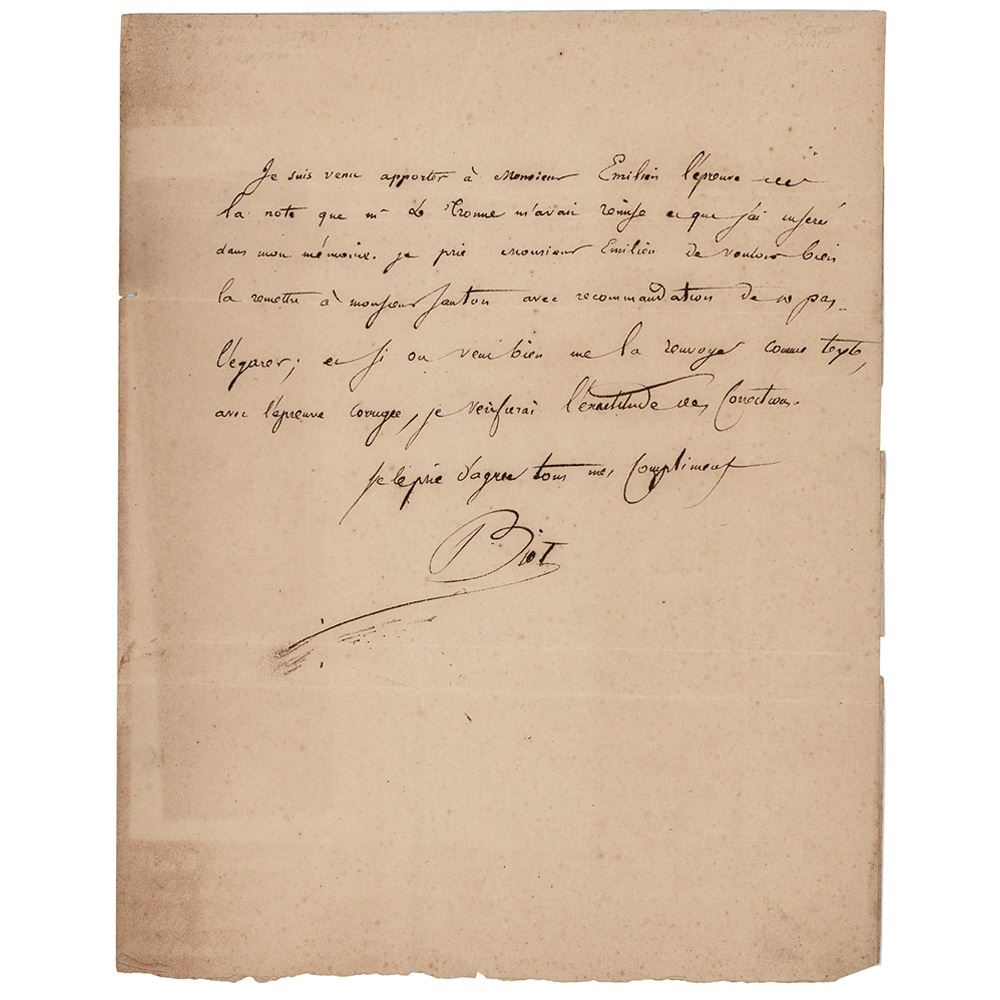 Je suis venu apporter à Monsieur Emilien l'épreuve de
la note que mr Le Tronne m'avait remise et que j'ai inseré
dans mon mémoire. je prie Monsieur Emilien de vouloir bien
la remettre à monsieur avec recommandation de ne pas
l'égarer; et si on veut bien me la renvoyer comme texte,
avec l'épreuve corrigée, je verifierai l'exactitude des Corrections.
Je le prie d'agreer tous mes Compliments
Biot